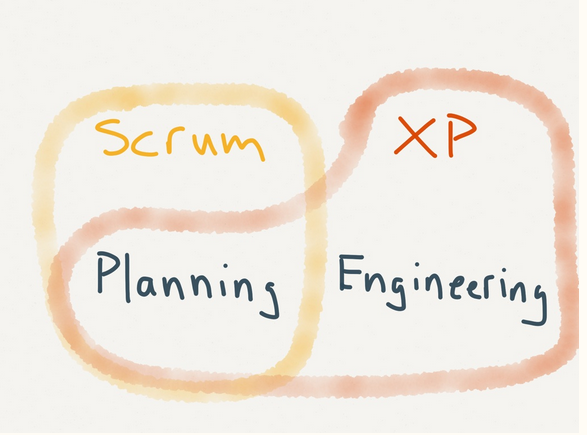 Scrum
XP
Planning
Engineering